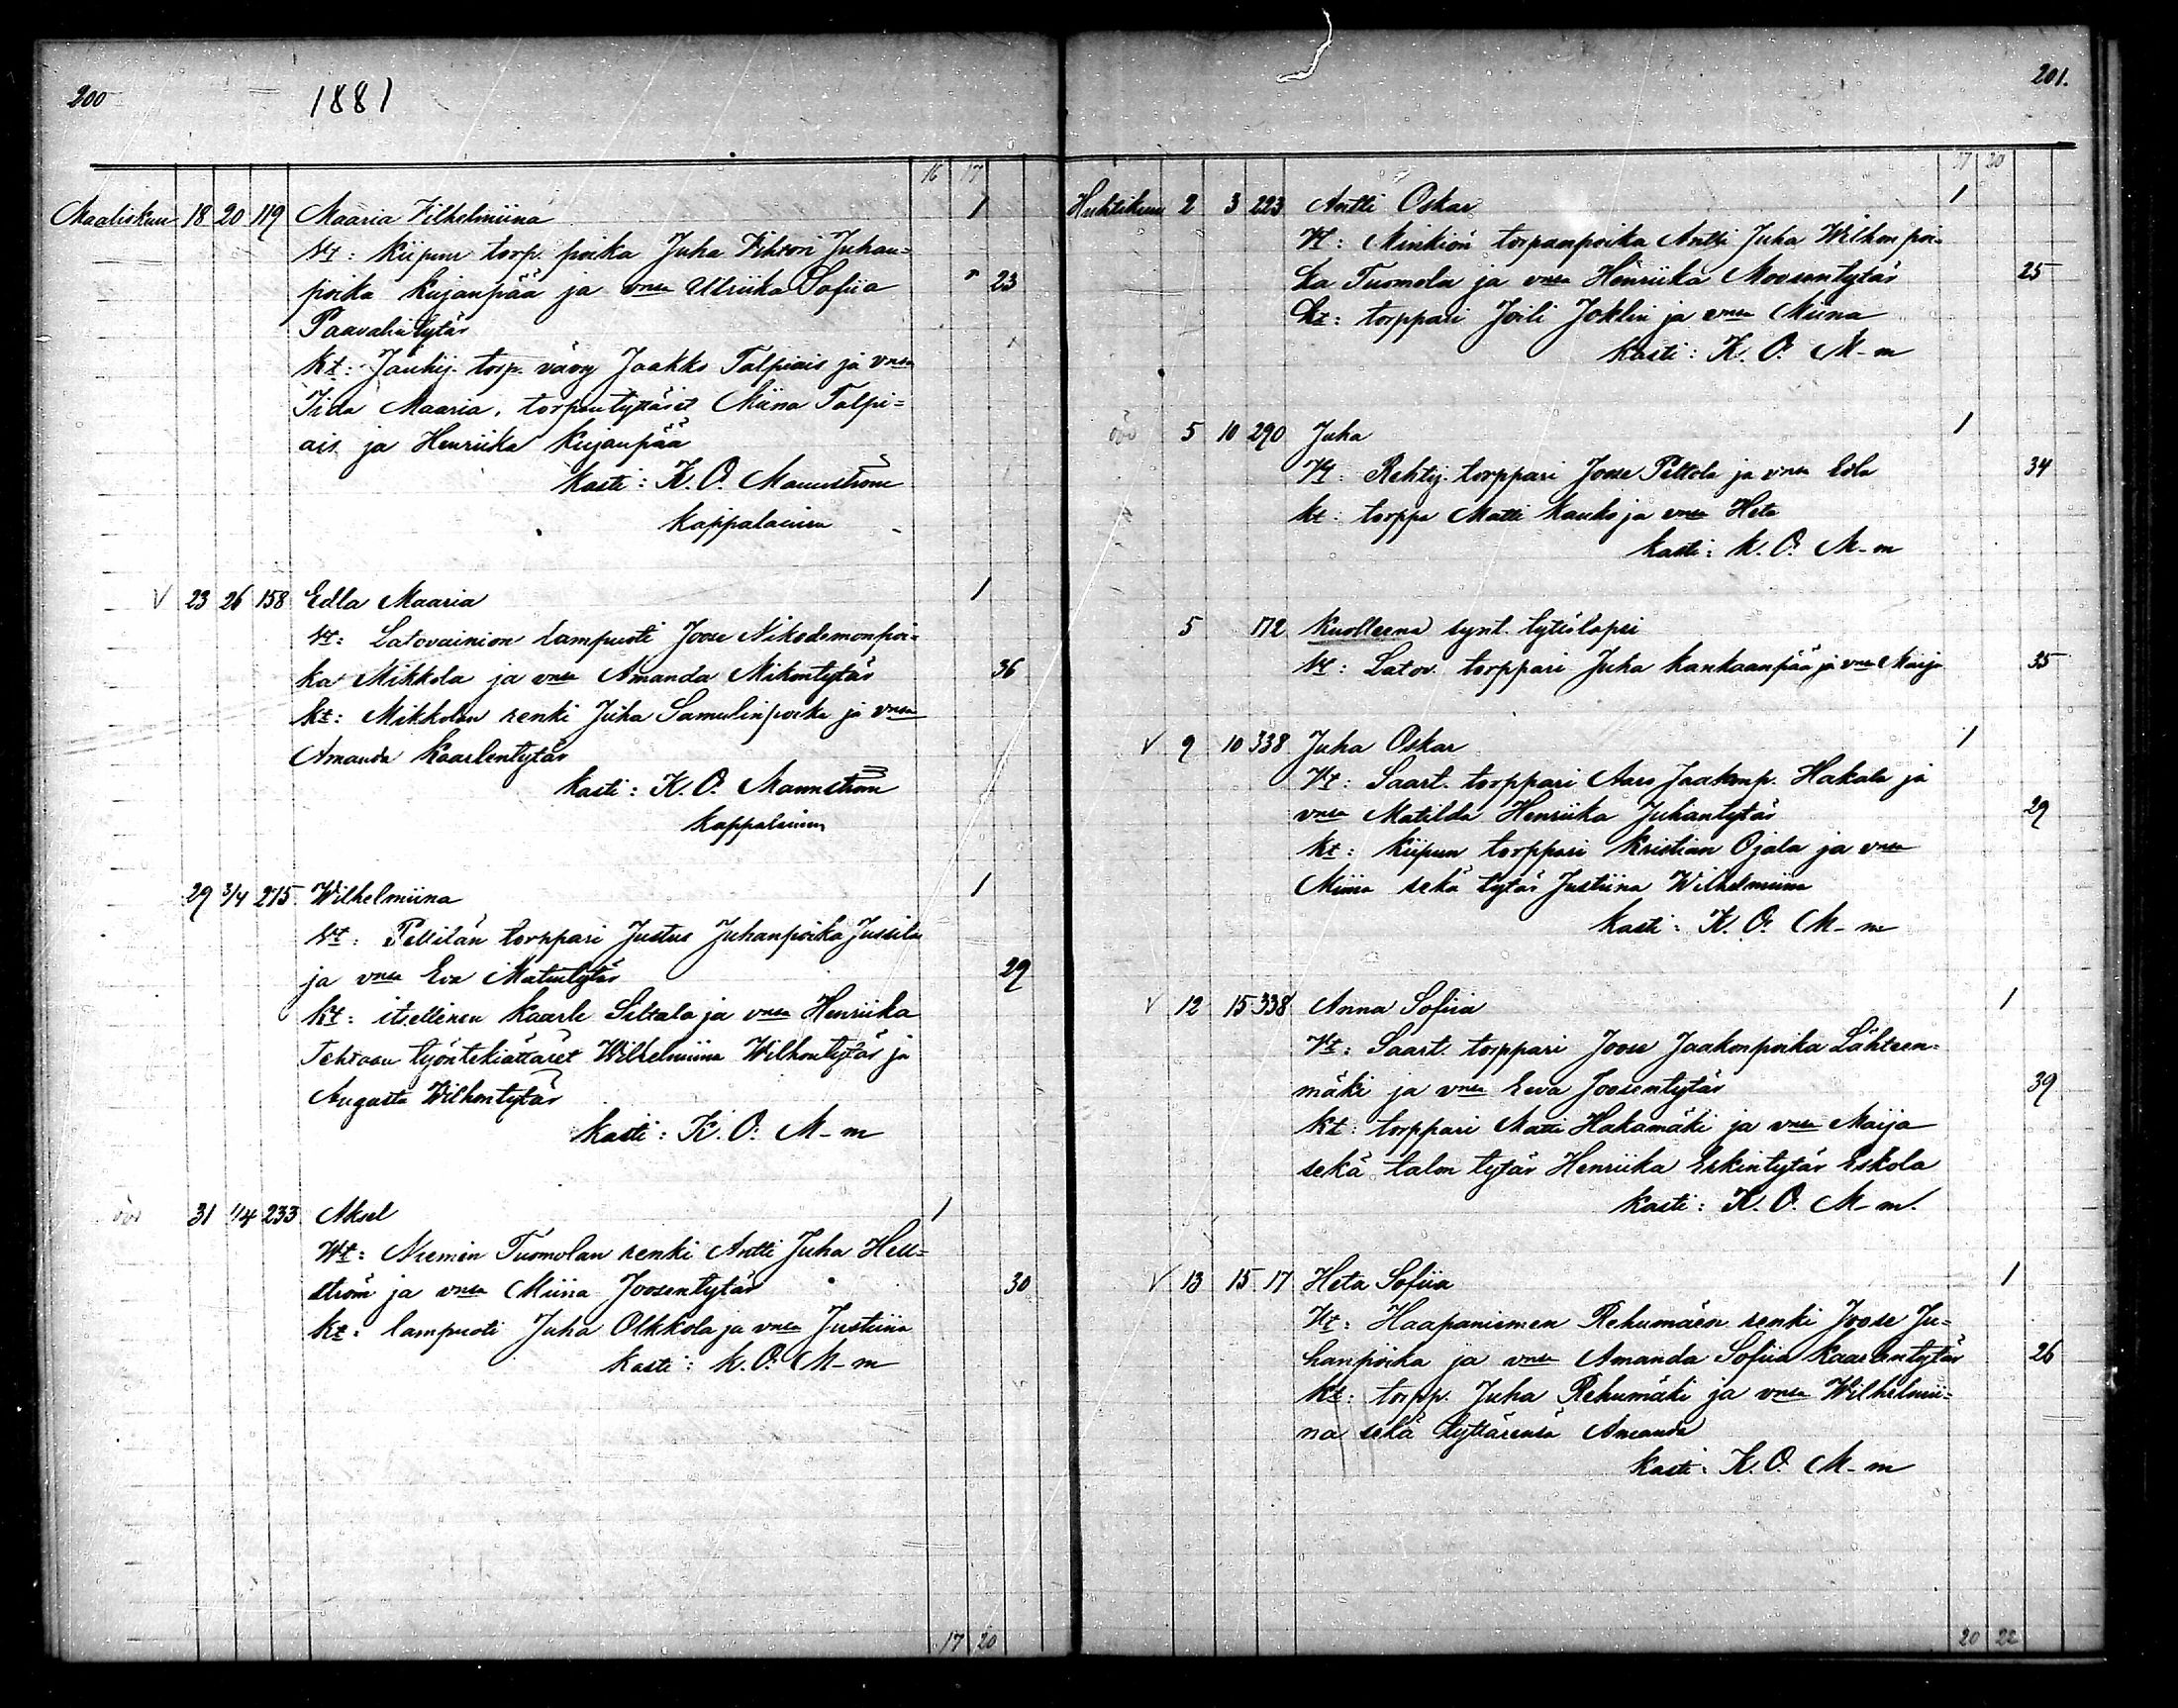 200 1881
16 17
Maaliskuu 18 20 119 Maaria Vilhelmiina 1
Vt: Kiipun torp. poika Juha Vihtori Juhan=
poika Kujanpää ja vnsa Ulriika Sofiia 23
Paavalintytär
Kt: Jauhij. torp. vävy Jaakko Talpiais ja vnsa
Iida Maaria, torpan tyttäret Miina Talpi=
ais ja Henriika Kujanpää
Kasti: K. O. Mannström
Kappalainen
V 23 26 158 Edla Maaria 1
Vt: Latovainion lampuoti Joose Nikodemonpoi=
ka Mikkola ja vnsa Amanda Mikontytär 36
Kt: Mikkolan renki Juha Samulinpoika ja vnsa
Amanda Kaarlentytär
Kasti: K. O. Mannström
Kappalainen
29 3/4 275 Wilhelmiina 1
Vt: Pellilän torppari Justus Juhanpoika Jussila
ja vnsa Eva Matintytär 29
Kt: itsellinen Kaarle Siltala ja vnsa Henriika
Tehtaan työntekiättäret Wilhelmiina Wilhontytär ja
Augusta Wilhontytär
Kasti: K. O. M-m
31 1/4 233 Aksel 1
Vt: Niemen Tuomolan renki Antti Juha Hell=
ström ja vnsa Miina Joosentytär 30
Kt: lampuoti Juha Olkkola ja vnsa Justiina
Kasti: K. O. M-m
17 20
201.
17 20
Huhtikuu 2 3 223 Antti Oskar 1
Vt: Minkiön torpanpoika Antti Juha Wilhon poi=
ka Tuomola ja vnsa Henriika Moosentytär 25
Kt: torppari Joili Joklin ja vnsa Miina
Kasti: K. O. M-m
5 10 290 Juha 1
Vt: Rehtij. torppari Joose Peltola ja vnsa Edla 34
Kt: torppa Matti Kauko ja vnsa Heta
Kasti: K. O. M-m
5 172 Kuolleena synt. tytöslapsi
Vt: Latov. torppari Juha Kankaanpää ja vnsa Maija 35
V 9 10 338 Juha Oskar 1
Vt: Saart. torppari Aaro Jaakonp. Hakala ja
vnsa Matilda Henriika Juhantytär 29
Kt: Kiipun torppari Kristian Ojala ja vnsa
Miina sekä tytär Justiina Wilhelmiina
Kasti: K. O. M-m
V 12 15 338 Anna Sofiia 1
Vt: Saart. torppari Joose Jaakonpoika Lähteen=
mäki ja vnsa Eeva Joosentytär 39
Kt: torppari Matti Hakamäki ja vnsa Maija
sekä talon tytär Henriika Erkintytär Eskola
Kasti: K. O. M-m.
V 13 15 17 Heta Sofiia 1
Vt: Haapaniemen Rehumäen renki Joose Ju=
hanpoika ja vnsa Amanda Sofiia Kaarlentytär 26
Kt: torpp. Juha Rehumäki ja vnsa Wilhelmii=
na sekä tyttärensä Amanda
Kasti: K. O. M-m
20 22